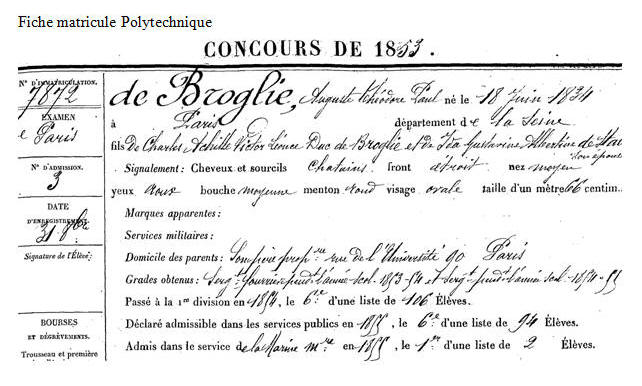 Fiche matricule Polytechnique
CONCOURS DE 1853.
N° D'IMMATRICULATION.
7872
EXAMEN
e Paris
N° D'ADMISSION.
3
DATE
D'ENREGISTREMENT
31 8bre
Signature de l'Élève:
BOURSES
ET DÉGRÈVEMENTS.
Trousseau et première
de Broglie, Auguste Théodore Paul né le 18 Juin 1834
à Paris département de la Seine
fils De Charles Achille Victor Léonce Duc de Broglie et de Ida Gustavine Albertine de Staël
son épouse
Signalement: Cheveux et sourcils Chatains front étroit nez moyen
yeux roux bouche moyenne menton rond visage ovale taille d'un mètre 66 centim.
Marques apparentes:
Services militaires:
Domicile des parents: Son père propre rue de l'Université 90 Paris
Grades obtenus: Sergt fourrier pendt l'année scol. 1853-54 et Sergt pendt l'année scol. 1854-55
Passé à la 1re division en 1854, le 6e d'une liste de 106 Élèves.
Déclaré admissible dans les services publics en 1855, le 6e d'une liste de 94 Élèves.
Admis dans le service de la Marine mre en 1855, le 1er d'une liste de 2 Élèves.